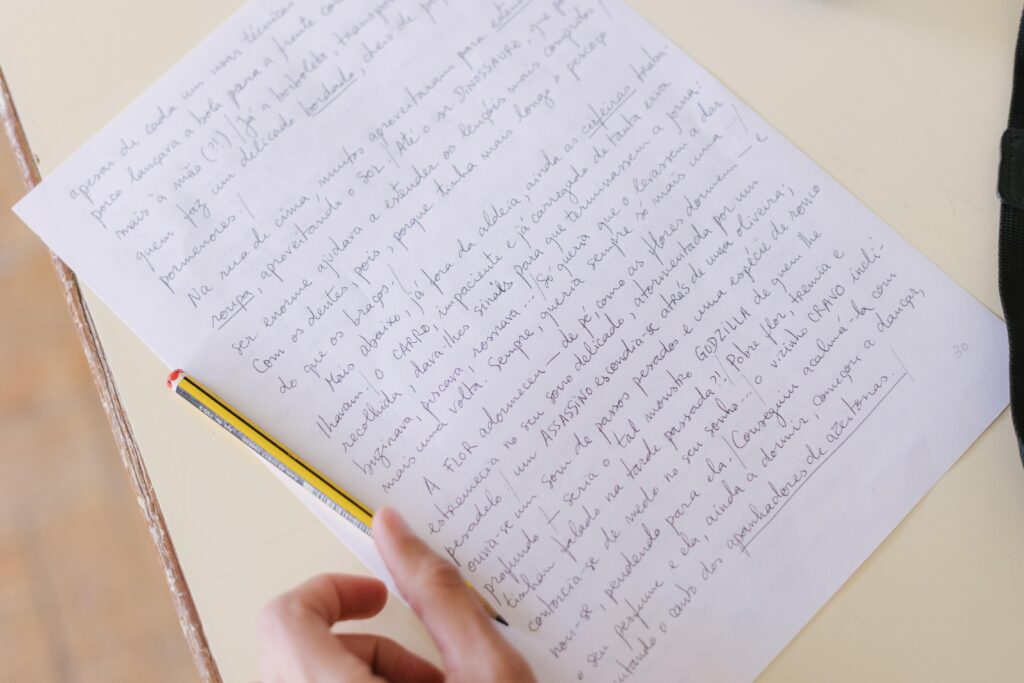 apesar de cada um usar técnicas
porco lançava a bola para a frente com
mais à mão (?!) / Já a borboleta, transpor
quem faz um delicado bordado, cheio de p
pormenores /
Na rua de cima, muitos aproveitaram para esten
roupa, aproveitando o SOL. / Até o sr DINOSSAURO, que p
ser enorme ajudava a estender os lençóis mais compridos /
Com os dentes, pois, porque tinha mais longo o pescoço
do que os braços.
Mais abaixo, já fora da aldeia, ainda as ceifeiras traba-
lhavam / o CARRO, impaciente e já carregado de tanta erva
recolhida, dava-lhes sinais para que terminassem a jorna:
buzinava, piscava, rosnava... Só queria que o levassem a dar
mais uma volta. Sempre, queria sempre só mais uma... /
A FLOR adormeceu — de pé, como as flores dormem — e
estremecia no seu sono delicado, atormentada por um
pesadelo / um ASSASSINO escondia-se atrás de uma oliveira;
ouvia-se um som de passos pesados e uma espécie de sono
profundo — seria o tal monstro GODZILLA de quem lhe
tinham falado na tarde passada?! / Pobre flor, tremia e
contorcia-se de medo no seu sonho... / o vizinho CRAVO incli-
nou-se, pendendo para ela / Conseguiu acalmá-la com
o seu perfume e ela, ainda a dormir, começou a dançar,
cantando o canto dos apanhadores de azeitonas. /
30